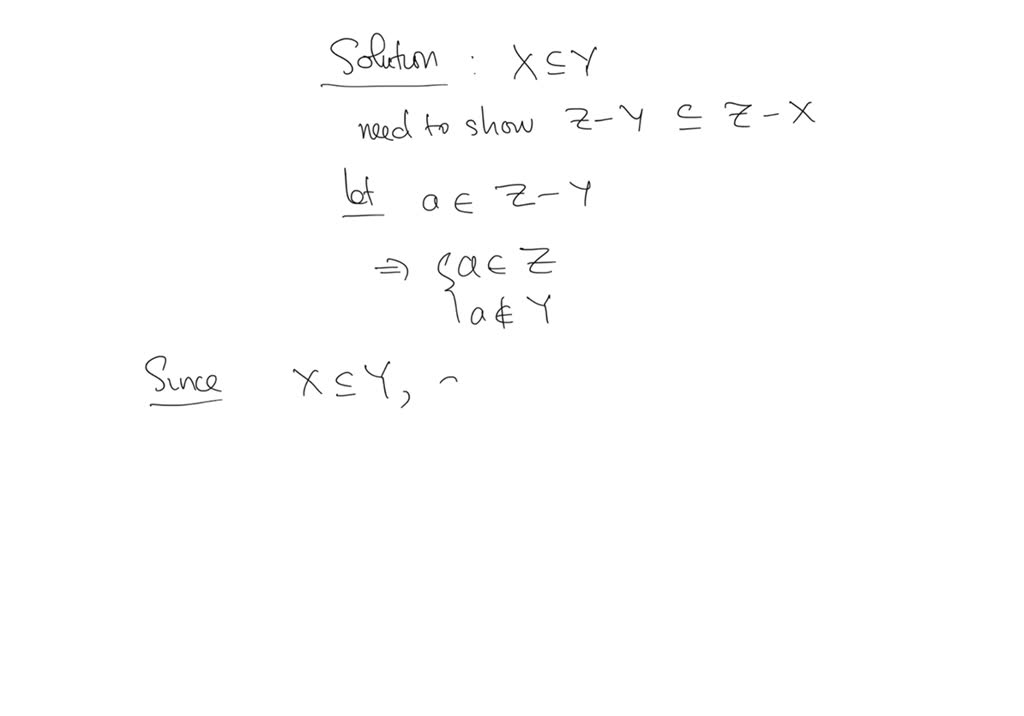 Solution : X ⊆ Y
need to show Z - Y ⊆ Z - X
let a ∈ Z - Y
⇒ { a ∈ Z
a ∉ Y
Since X ⊆ Y,